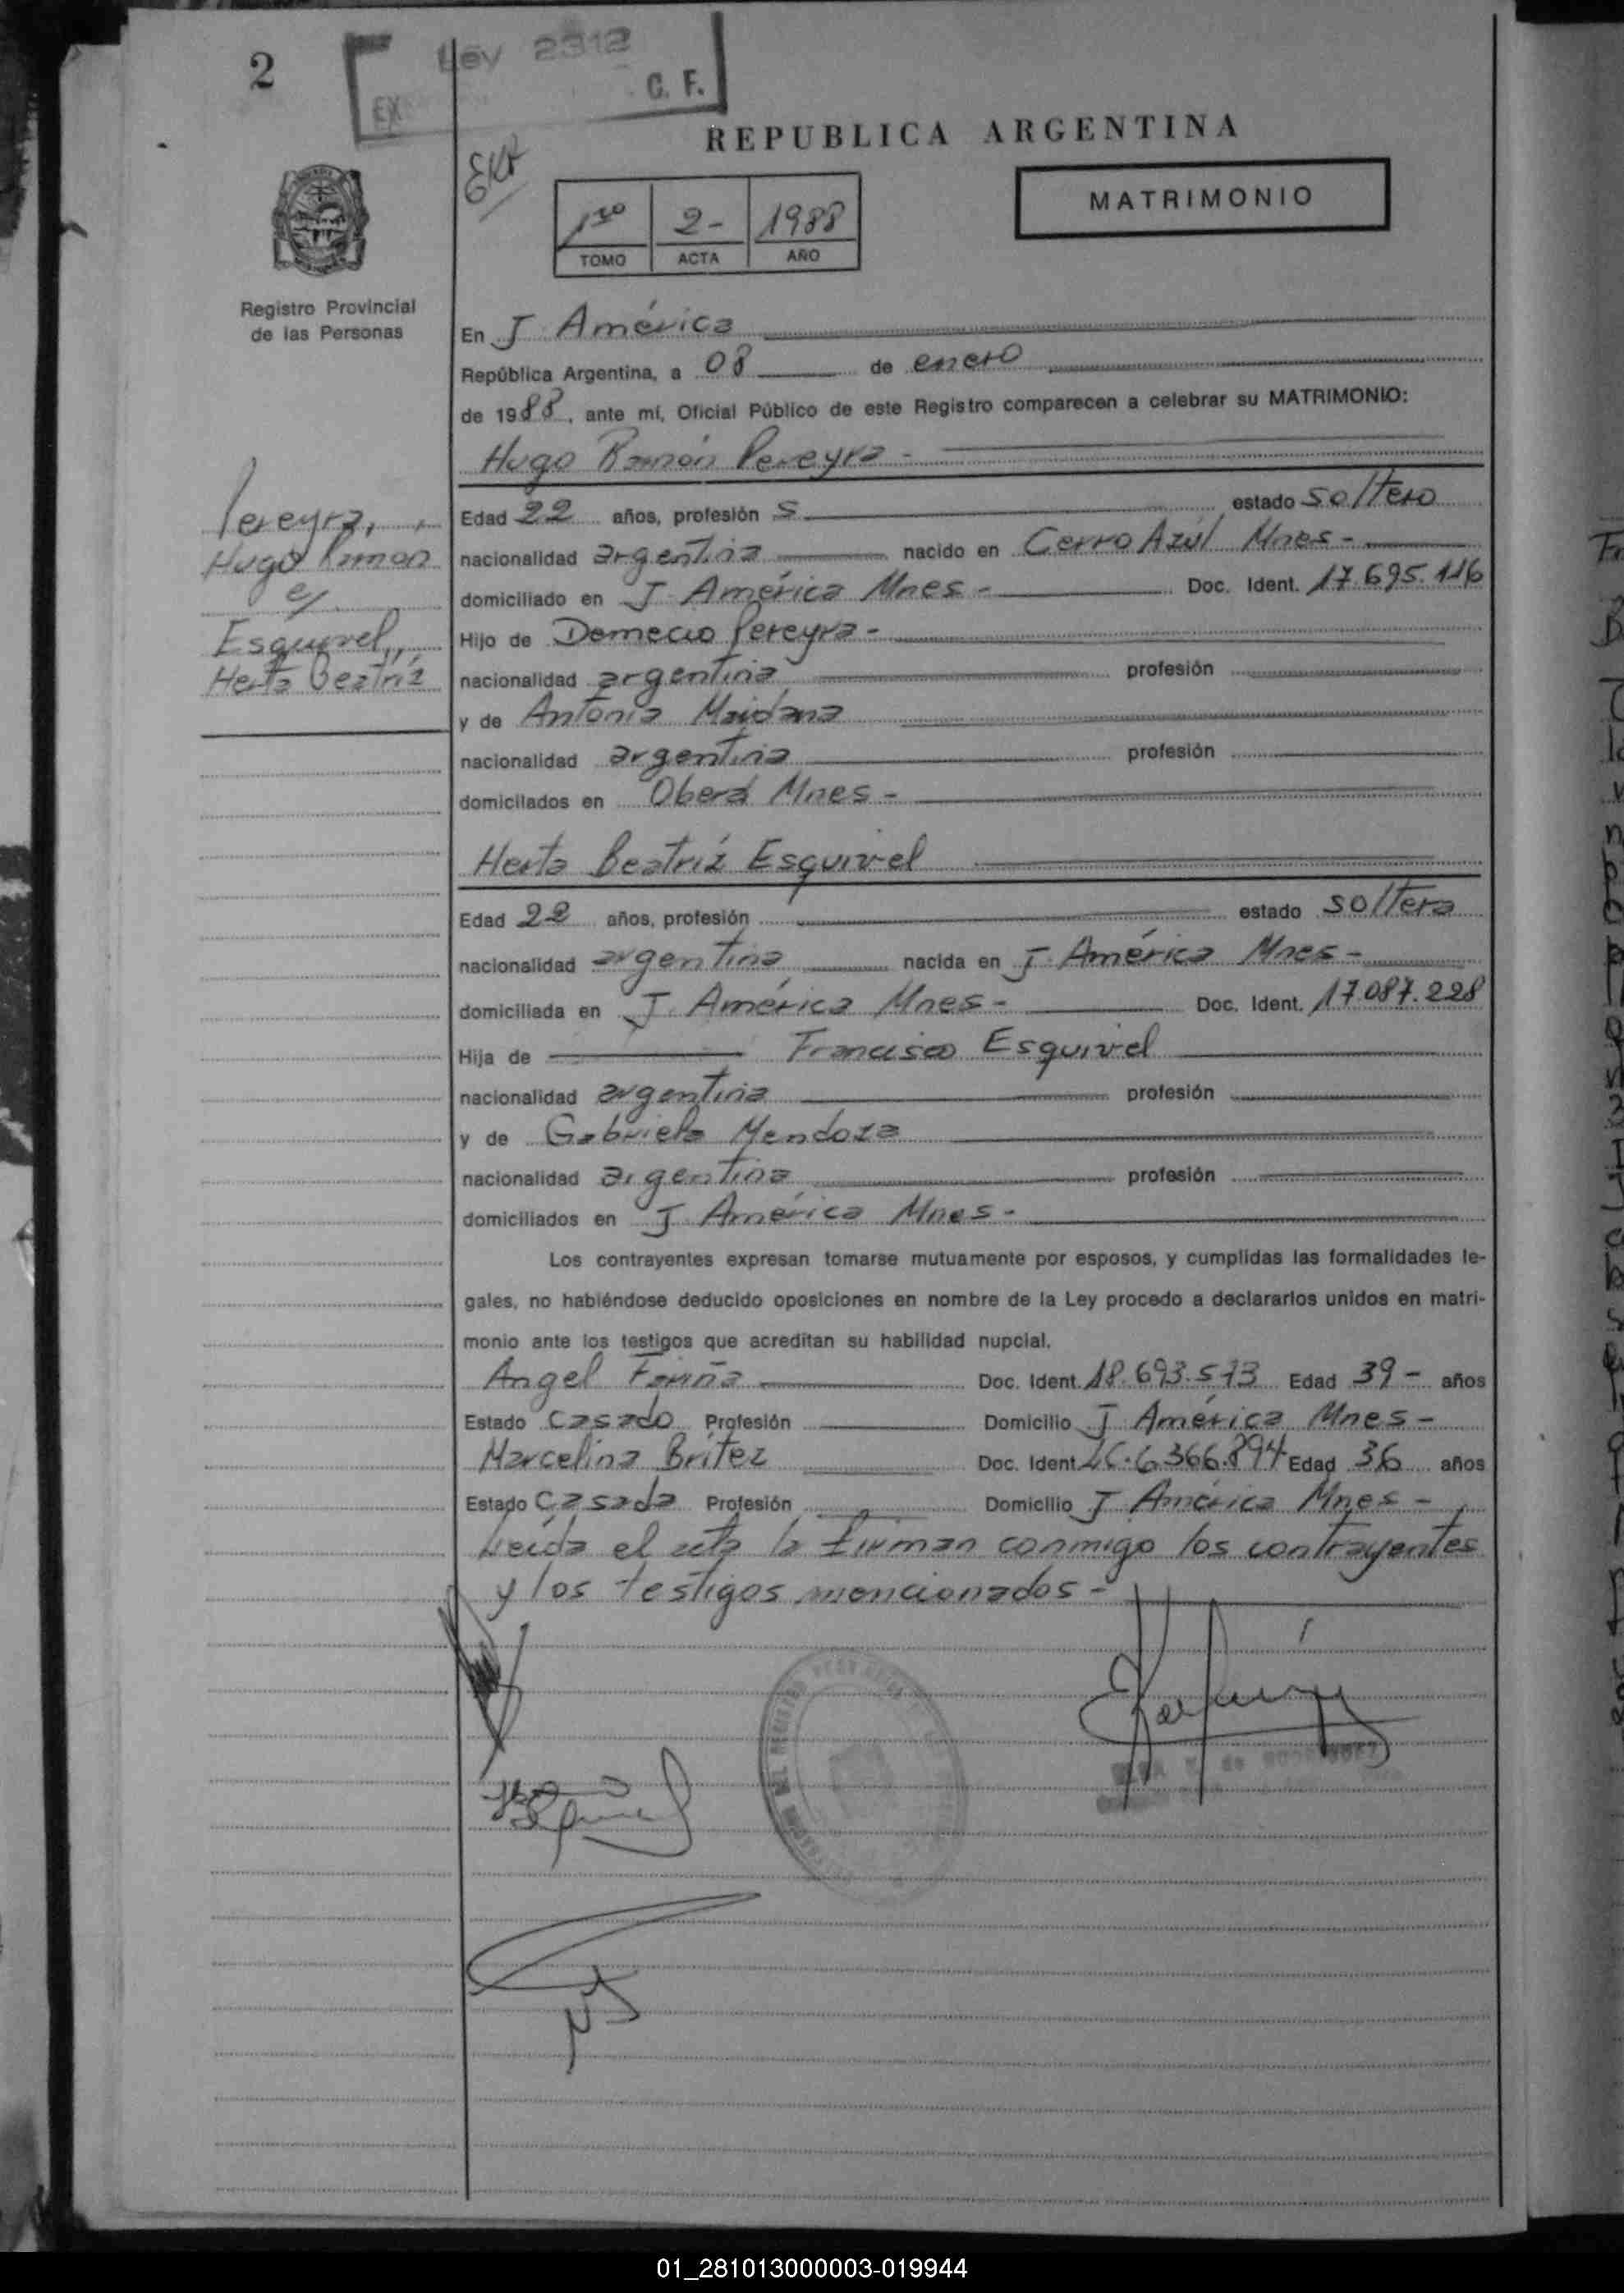 2
Ley 2312
EX
C. F.
REPUBLICA ARGENTINA
MATRIMONIO
1ro 2- 1988
TOMO ACTA AÑO
Registro Provincial
de las Personas
En J. América
República Argentina, a 08 de enero
de 1988, ante mí, Oficial Público de este Registro comparecen a celebrar su MATRIMONIO:
Hugo Ramón Pereyra -
Pereyra,
Hugo Ramon
c/
Esquivel,
Herta Beatríz
Edad 22 años, profesión S estado soltero
nacionalidad argentina nacido en Cerro Azúl Mnes-
domiciliado en J. América Mnes - Doc. Ident. 17.695.116
Hijo de Demecio Pereyra -
nacionalidad argentina profesión
y de Antonia Maidana
nacionalidad argentina profesión
domiciliados en Oberá Mnes -
Herta Beatríz Esquivel
Edad 22 años, profesión estado soltera
nacionalidad argentina nacida en J. América Mnes -
domiciliada en J. América Mnes - Doc. Ident. 17.087.228
Hija de Francisco Esquivel
nacionalidad argentina profesión
y de Gabriela Mendoza
nacionalidad argentina profesión
domiciliados en J. América Mnes -
Los contrayentes expresan tomarse mutuamente por esposos, y cumplidas las formalidades le-
gales, no habiéndose deducido oposiciones en nombre de la Ley procedo a declararlos unidos en matri-
monio ante los testigos que acreditan su habilidad nupcial.
Angel Fariña Doc. Ident. 18.693.573 Edad 39 - años
Estado casado Profesión Domicilio J. América Mnes -
Marcelina Britez Doc. Ident. LC. 6.366.894 Edad 36 años
Estado Casada Profesión Domicilio J. América Mnes -
Leída el acta la firman conmigo los contrayentes
y los testigos mencionados -
01_281013000003-019944